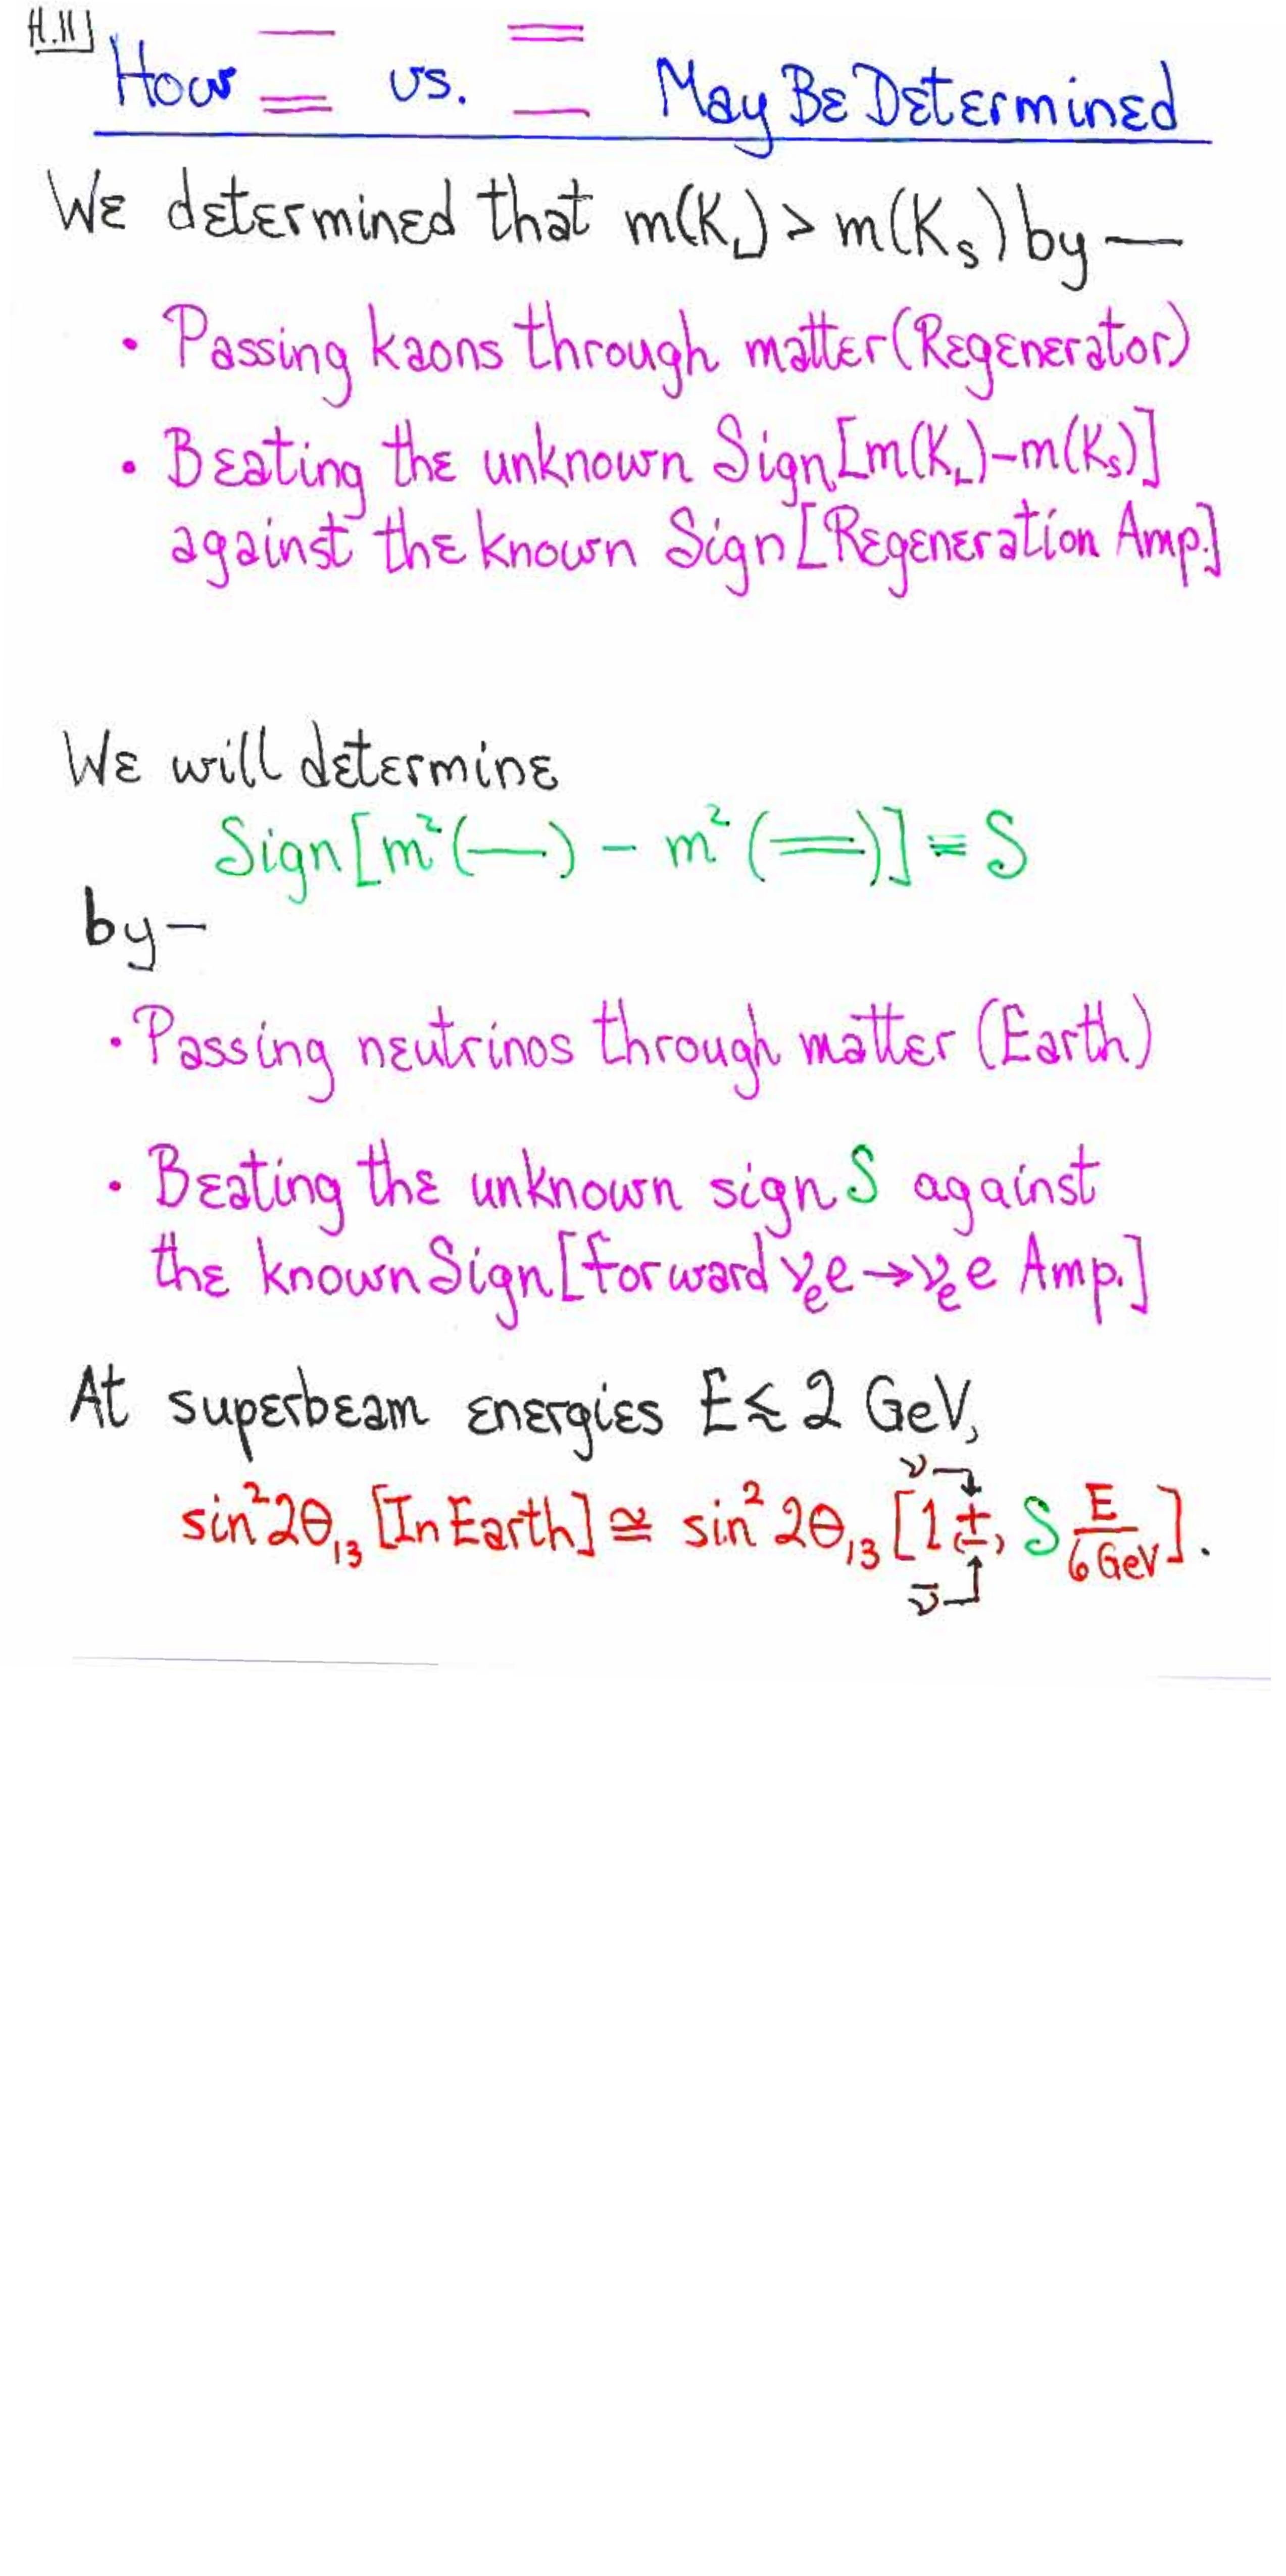 H.11
How vs. May Be Determined
We determined that m(K_L) > m(K_S) by —
• Passing kaons through matter (Regenerator)
• Beating the unknown Sign[m(K_L)-m(K_S)]
against the known Sign[Regeneration Amp.]
We will determine
Sign[m²(—) - m²(═)] ≡ S
by —
• Passing neutrinos through matter (Earth)
• Beating the unknown sign S against
the known Sign[forward ν_e e → ν_e e Amp.]
At superbeam energies E ≲ 2 GeV,
ν
sin² 2θ₁₃ [In Earth] ≅ sin² 2θ₁₃ [1 (±) S E/6 GeV].
ν̄